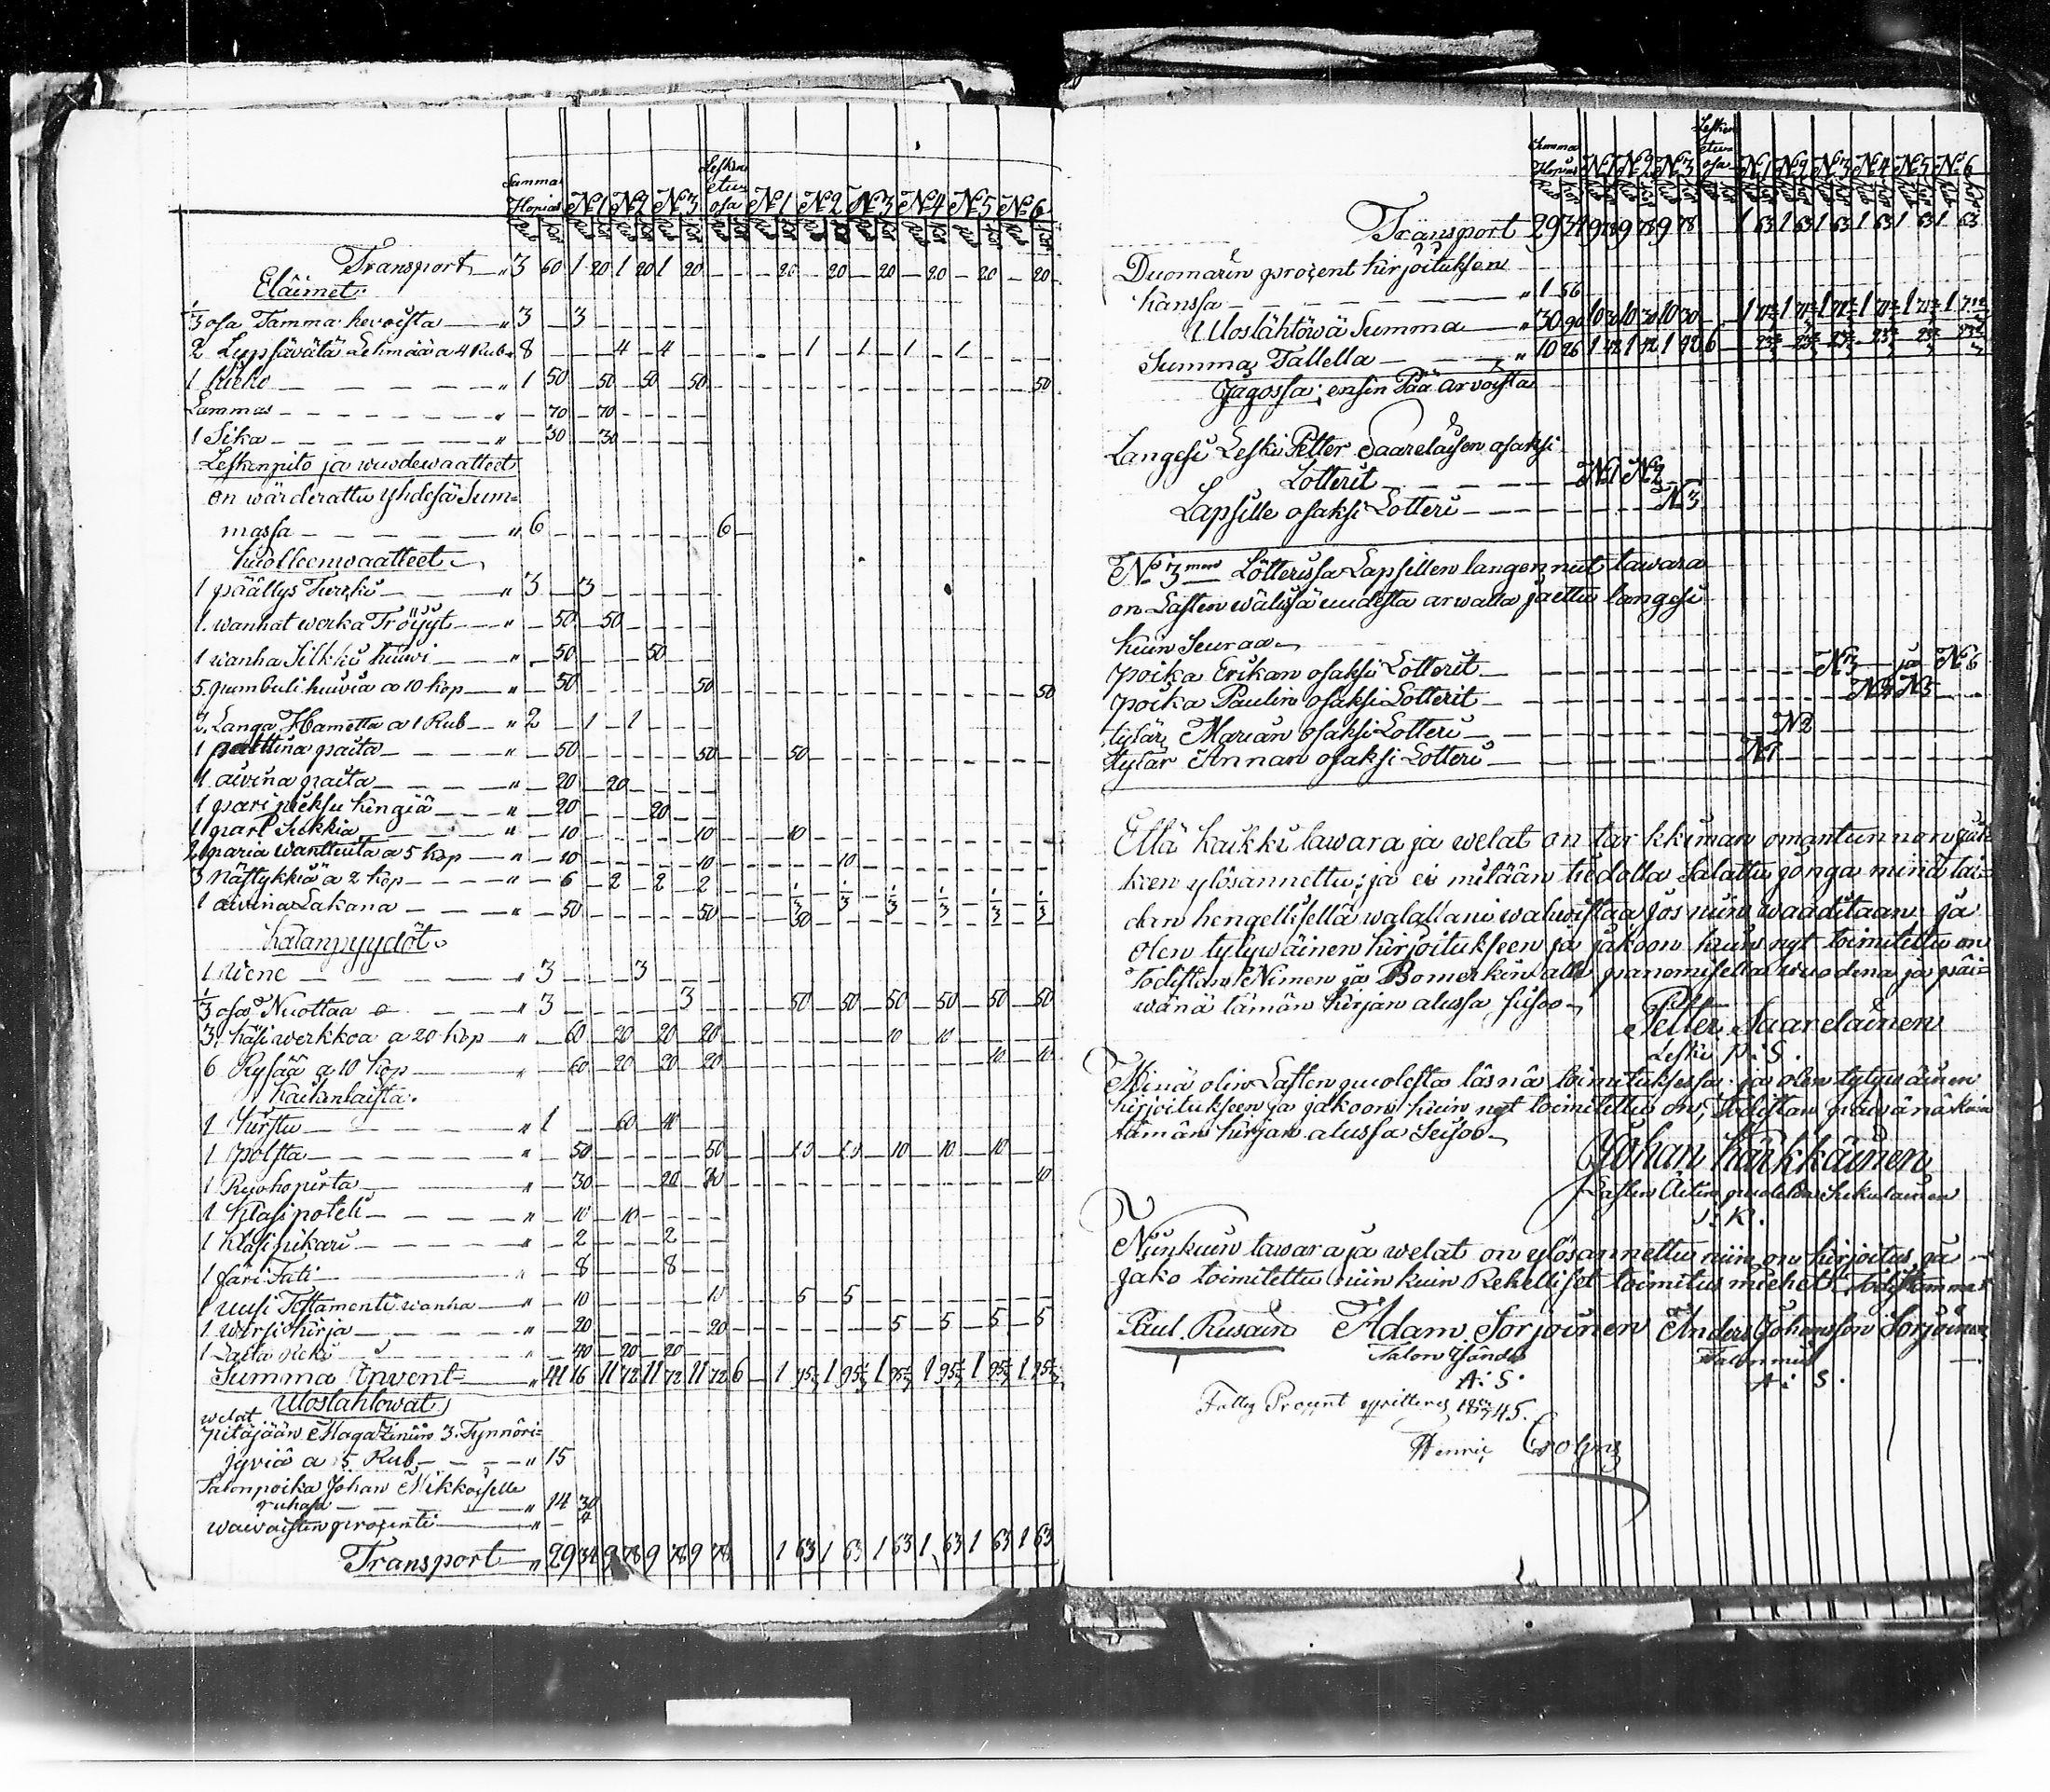 Summa Hopias No 1 No 2 No 3 Lesken etu osa No 1 No 2 No 3 No 4 No 5 No 6
Transport 3 60 1 20 1 20 1 20 20 20 20 20 20 20
Eläimet
1/3 osa Tamma hevoista 3 3
2 Lypsävätä Lehmää a 4 Rub 8 4 4 1 1 1 1
1 hieho 1 50 50 50 50 50
Lammas 70 70
1 Sika 30 30
Leskenpito ja wuodewaatteet
on wärderattu yhdesä Sum=
massa 6 6
kuolleenwaatteet
1 päällys Turkki 3 3
1. wanhat werka Tröyyt 50 50
1 wanha Silkki huiwi 50 50
5. pumbuli huivia a 10 kop 50 50 50
2. Langa Hametta a 1 Rub 2 1 1
1 palttina paita 50 50 50
1 aivina paita 20 20
1 pari pieksu kengiä 20 20
1 pari Sukkia 10 10 10
2 paria wanttuita a 5 kop 10 10 10
3 Nästykkiä a 2 kop 6 2 2 2 1/3 1/3 1/3 1/3 1/3 1/3
1 aivina Lakana 50 50 50
kalanpyydöt
1 Wene 3 3
1/3 osa Nuottaa 3 3 50 50 50 50 50 50
3. käsi werkkoa a 20 kop 60 20 20 20 10 10
6 Rysää a 10 kop 60 20 20 20 10 10
kaikenlaista.
1 kirstu 1 60 40
1 polsta 50 50 10 10 10 10 10
1 Ruohopirta 30 20 10 10
1 klasi poteli 10 10
1 klasi pikari 2 2
1 Tati 8 8
1 uusi Testamenti wanha 10 10 5 5
1 wirsi kirja 20 20 5 5 5 5
1 Laita Reki 40 20 20
Summa Invent 41 16 11 72 11 72 11 72 6 1 95 1/3 1 95 1/3 1 95 1/3 1 95 1/3 1 95 1/3 1 95 1/3
Uloslähtowät
welat
pitäjään Magaziniin 3. Tynnöri=
jyviä a 5 Rub 15
Talonpoika Johan Mikkoiselle
rahasa 14 30
waivaisten prosenti 4
Transport 29 34 9 78 9 78 9 78 1 63 1 63 1 63 1 63 1 63 1 63
Summa Hopias No 1 No 2 No 3 Lesken etu osa No 1 No 2 No 3 No 4 No 5 No 6
Transport 29 34 9 78 9 78 9 78 1 63 1 63 1 63 1 63 1 63 1 63
Duomarin prosent kirjoituksen
kanssa 1 56
Uloslähtöwä Summa 30 90 10 30 10 30 10 30
Summa Tallella 10 26 1 42 1 42 1 42 6
Jagossa; ensin Pää arvoista
Langesi Leski Petter Saarelaisen osaksi
Lotterit No 1 No 2
Lapsille osaksi Lotteri No 3
No 3 Lotterissa Lapsillen langennut tawara
on Lasten wälisä uudesta arwalla jaettu langesi
kuin Seuraa
poika Erikan osaksi Lotterit No 3 ja No 6
poika Paulin osaksi Lotterit No 4 No 5
tytär Marian osaksi Lotteri No 2
tytär Annan osaksi Lotteri No 1
Että kaikki tawara ja welat on tarkkiman omantunnon jäl=
keen ylösannettu; ja ei mitään tiedolla Salattu jonga minä tai=
dan hengellisellä walallani wahwistaa jos niin waaditaan. ja
olen tytywäinen kirjoitukseen ja jakoon kuin nyt toimitettu on
Todistan Nimen ja Bomerkin alle panomisella wuodena ja päi=
wänä tämän kirjan alussa seisoo
Petter Saarelainen
Leski P. S.
Minä olin Lasten puolesta läsnä toimituksessa. ja olen tytywäinen
kirjoitukseen ja jakoon kuin nyt toimitettu on; Todistan päiwänä kuin
tämän kirjan alussa Seisoo
Johan kärkkäinen
Lasten Äitin puolelda Sukulainen
J. K.
Niinkuin tawara ja welat on ylösannettu niin on kirjoitus ja
jako toimitettu niin kuin Rehelliset toimitus miehet Todistamme
Paul. Rusain Adam Sorjoinen Anders Johansson Sorjoinen
Talon Isändä
A. S. A. S.
Fattig Procent 45.
Henric